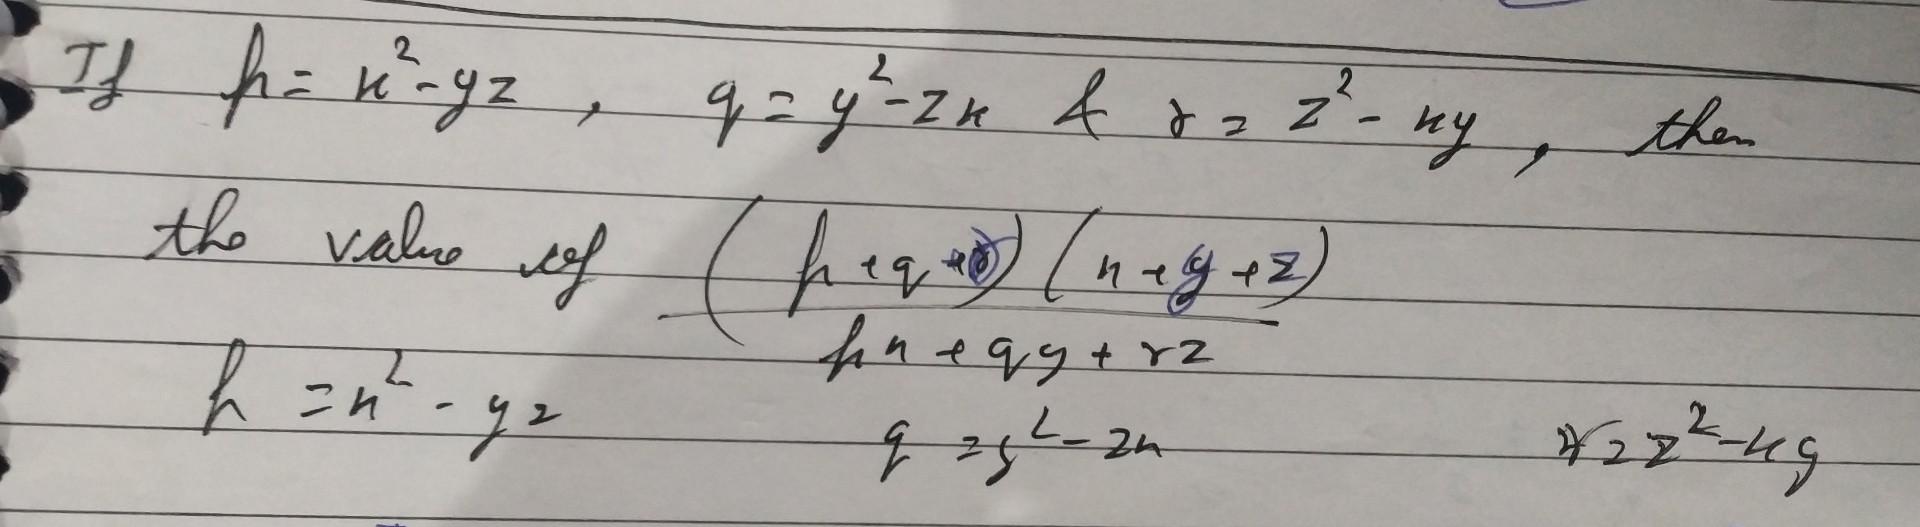 If p = x² - yz , q = y² - zx & r = z² - xy , then
the value of (p + q + r) (x + y + z)
px + qy + rz
p = x² - yz q = y² - zx r = z² - xy